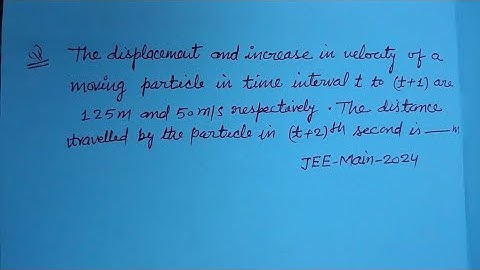 Q The displacement and increase in velocity of a
moving particle in time interval t to (t+1) are
125m and 50 m/s respectively. The distance
travelled by the particle in (t+2)th second is — m
JEE-Main-2024